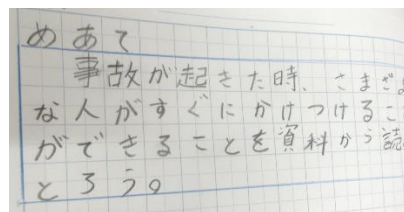 めあて
事故が起きた時、さまざま
な人がすぐにかけつけるこ
ができることを資料から読
とろう。